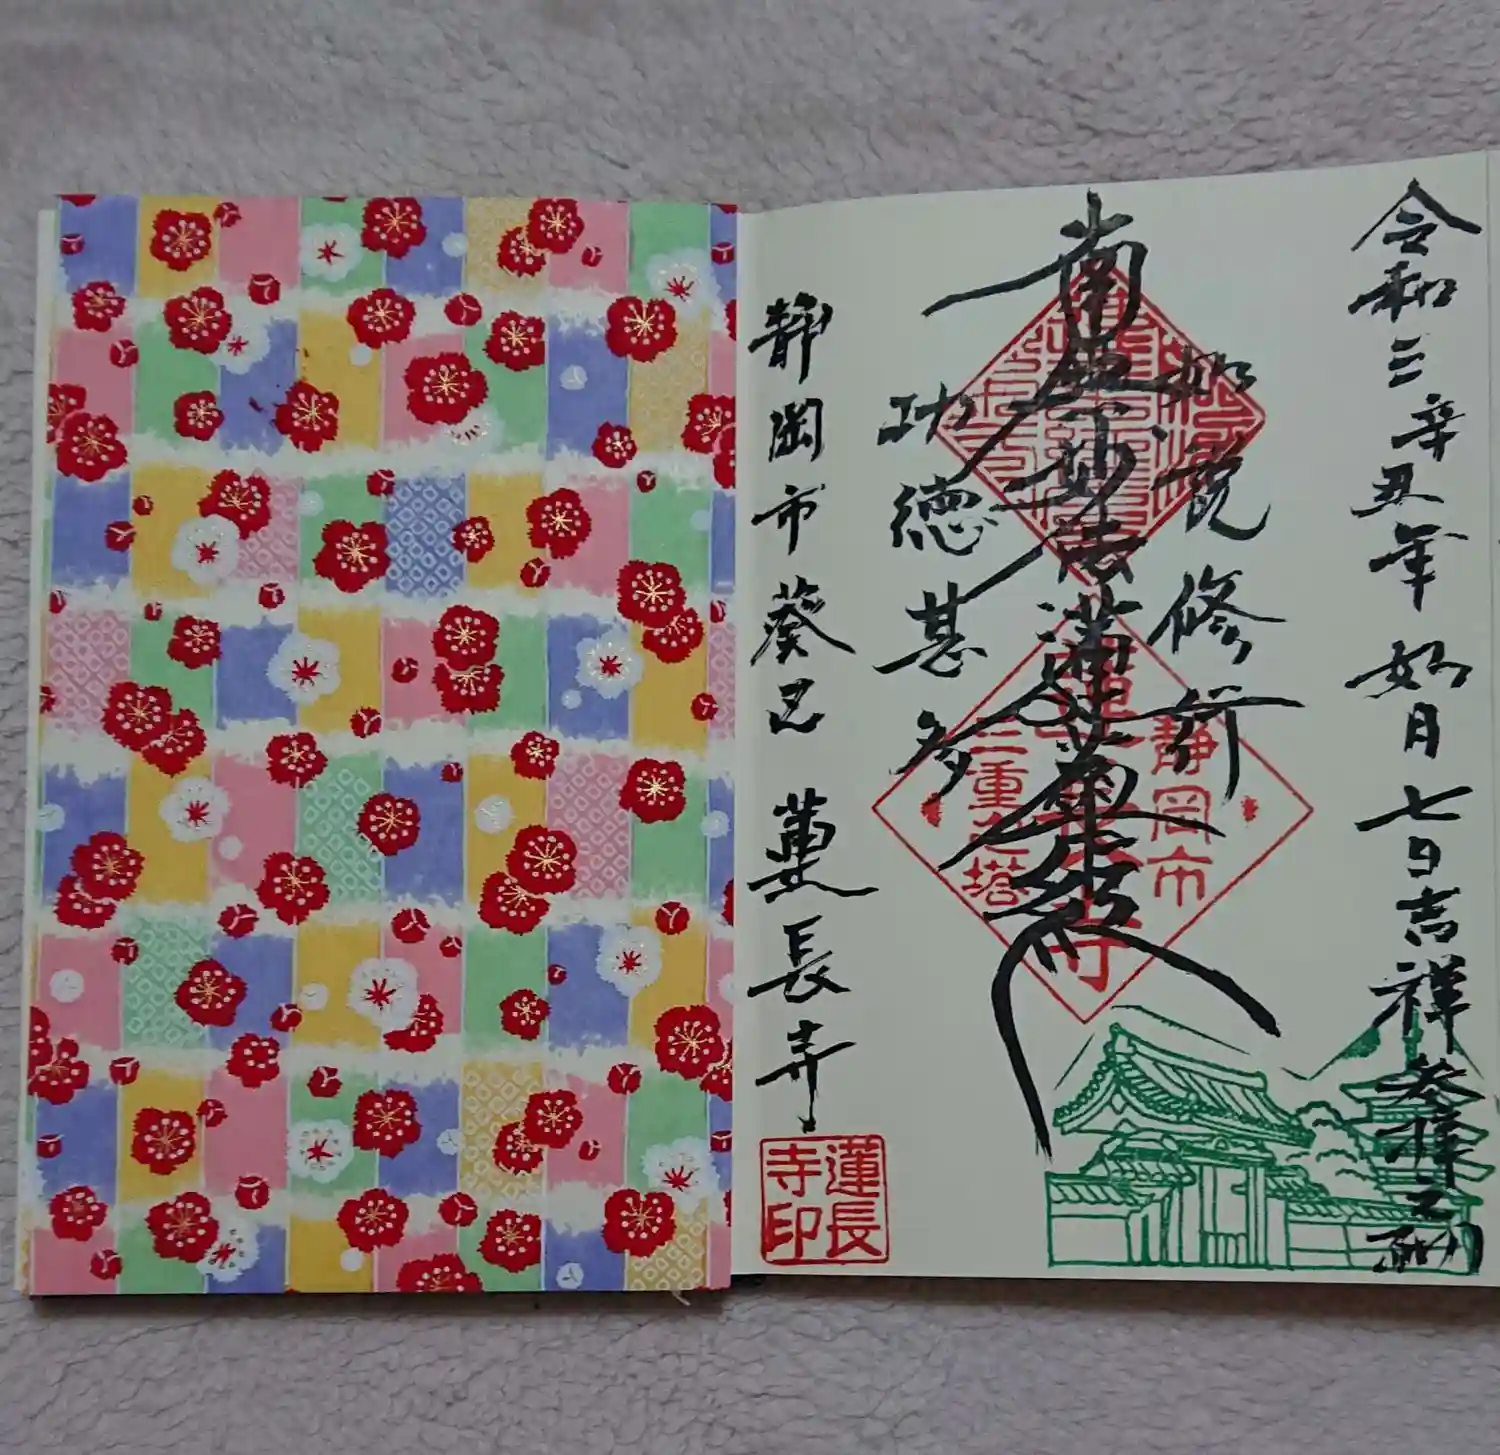 令和三辛丑年如月七日吉祥参拝之砌
如説修行
南無妙法蓮華経
功徳甚多
静岡市
蓮長寺
三重之塔
静岡市葵区 蓮長寺
蓮長
寺印